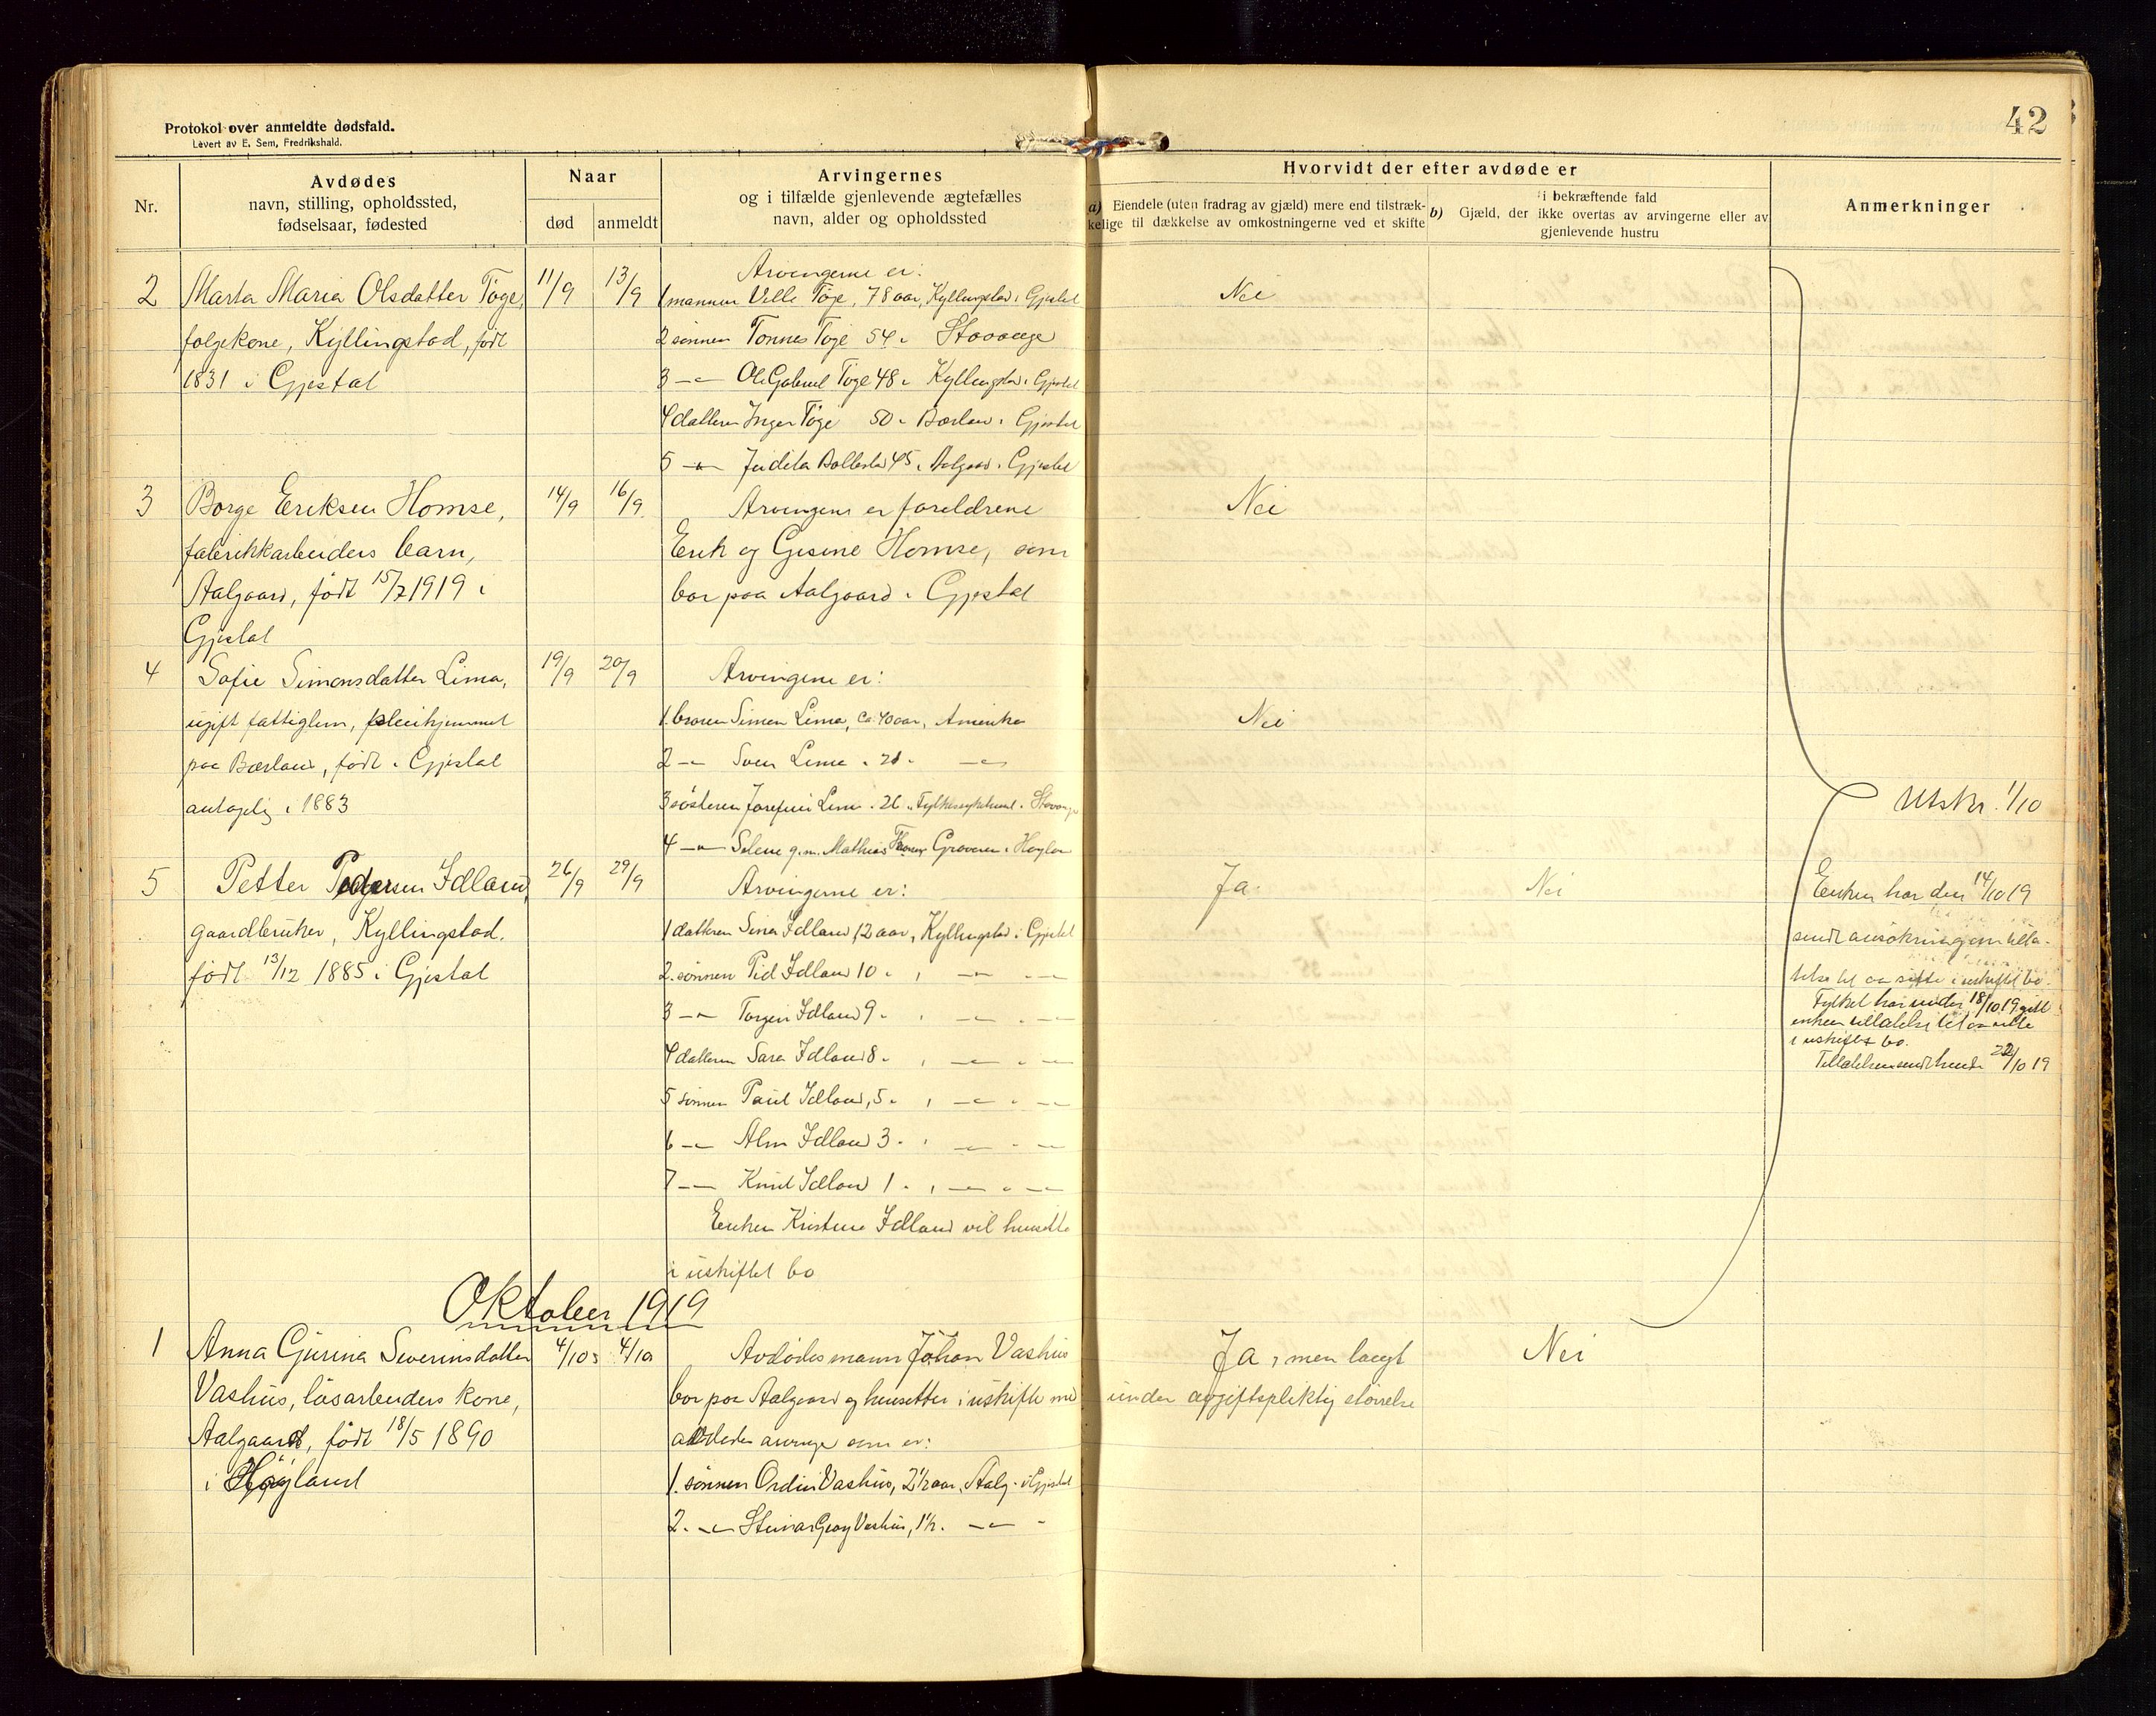 Protokol over anmeldte dødsfald.
Levert av E. Sem, Fredrikshald.
42
Nr.
Avdødes
navn, stilling, opholdssted,
fødselsaar, fødested
Naar
død
anmeldt
Arvingernes
og i tilfælde gjenlevende ægtefælles
navn, alder og opholdssted
Hvorvidt der efter avdøde er
a) Eiendele (uten fradrag av gjæld) mere end tilstræk-
kelige til dækkelse av omkostningerne ved et skifte
b) Gjæld, der i bekræftende fald
ikke overtas av arvingerne eller av
gjenlevende hustru
Anmerkninger
2 Marta Maria Olsdatter Töge,
folgekone, Kyllingstad, født
1831 i Gjestal
11/9
13/9
Arvingerne er:
1 mannen Ville Töge, 78 aar, Kyllingstad i Gjestal
2 sönnen Tönnes Töge 54 "
3 -"- Ole Gabriel Töge 48 " Kyllingstad i Gjestal
4 datteren Inger Töge 50 " Bærland i Gjestal
5 -"- 45 " Aalgaard i Gjestal
Nei
3 Borge Eriksen Homse,
fabrikkarbeiders barn,
Aalgaard, født 15/7 1919 i
Gjestal
14/9
16/9
Arvingene er foreldrene
Erik og Gesine Homse, som
bor paa Aalgaard i Gjestal
Nei
4 Sofie Simonsdatter Lima,
ugift fattiglem, pleiehjemmet
paa Bærland, født i Gjestal
antagelig i 1883
19/9
20/9
Arvingene er:
1. broren Simon Lima, ca. 40 aar, Amerika
2 -"- Sven Lima " 21 " -"-
3 søsteren Josefine Lima " 26 "
4 -"- Selene g.m. Mathias
Nei
Utskr. 1/10
5 Petter Pedersen Idland,
gaardbruker, Kyllingstad,
født 13/12 1885 i Gjestal
26/9
29/9
Arvingerne er:
1 datteren Sina Idland, 12 aar, Kyllingstad i Gjestal
2. sönnen Idland 10 " , -"- " -"-
3 -"- Torgeir Idland 9 " , -"- " -"-
4 datteren Sara Idland 8 " , -"- " -"-
5 sönnen Paul Idland, 5 " , -"- " -"-
6 -"- Idland 3 " , -"- " -"-
7 -"- Knut Idland 1 " , -"- " -"-
Enken Kristine Idland vil hensitte
i uskiftet bo
Ja.
Nei
Enken har den 14/10 19
sendt ansökning om tilla-
telse til aa sitte i uskiftet bo.
Fylket har under 18/10 19 gitt
enken tillatelse til aa sitte
i uskiftet bo.
Tillatelsen sendt hende 22/10 19
Oktober 1919
1 Anna Gurina Severinsdatter
Vashus, lösarbeiders kone,
Aalgaard, født 18/5 1890
i Høyland
4/10
4/10
Avdødes mann Johan Vashus
bor paa Aalgaard og hensetter i uskifte med
avdødes arvinger som er:
1. sönnen Ordin Vashus, 2 1/2 aar, Aalg. i Gjestal
2. -"- Steinar Georg Vashus, 1 1/2 " -"- "
Ja, men langt
under avgiftspliktig størrelse
Nei